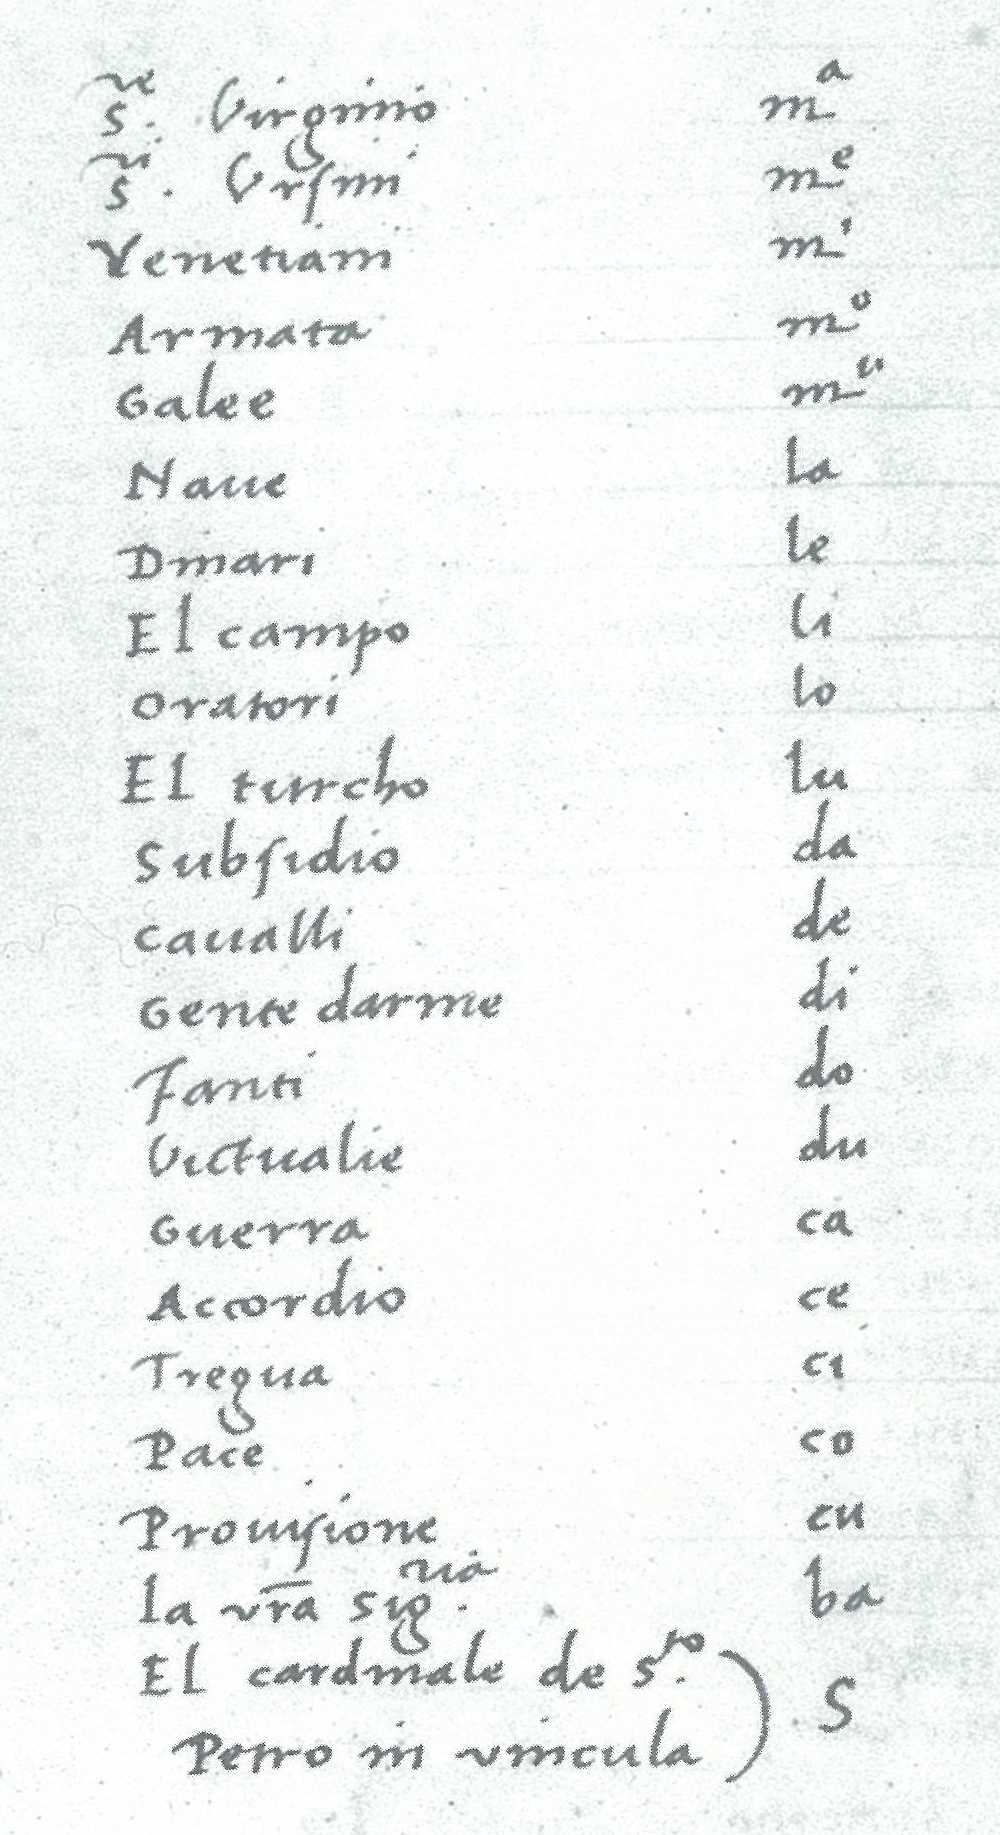 s.re Virginio mª
s.ri Vrsini mᵉ
Venetiani mⁱ
Armata mº
Galee mᵘ
Naue la
Dinari le
El campo li
Oratori lo
El turcho lu
Subsidio da
Caualli de
Gente darme di
Fanti do
Victualie du
Guerra ca
Accordio ce
Tregua ci
Pace co
Prouisione cu
la vr̄a sig.ria ba
El cardinale de S.to
Petro in vincula ) S